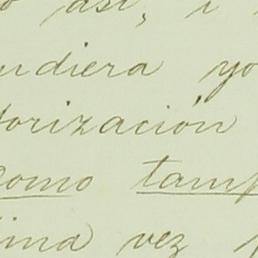 así, i
udiera yo
torización
como tamp
una vez